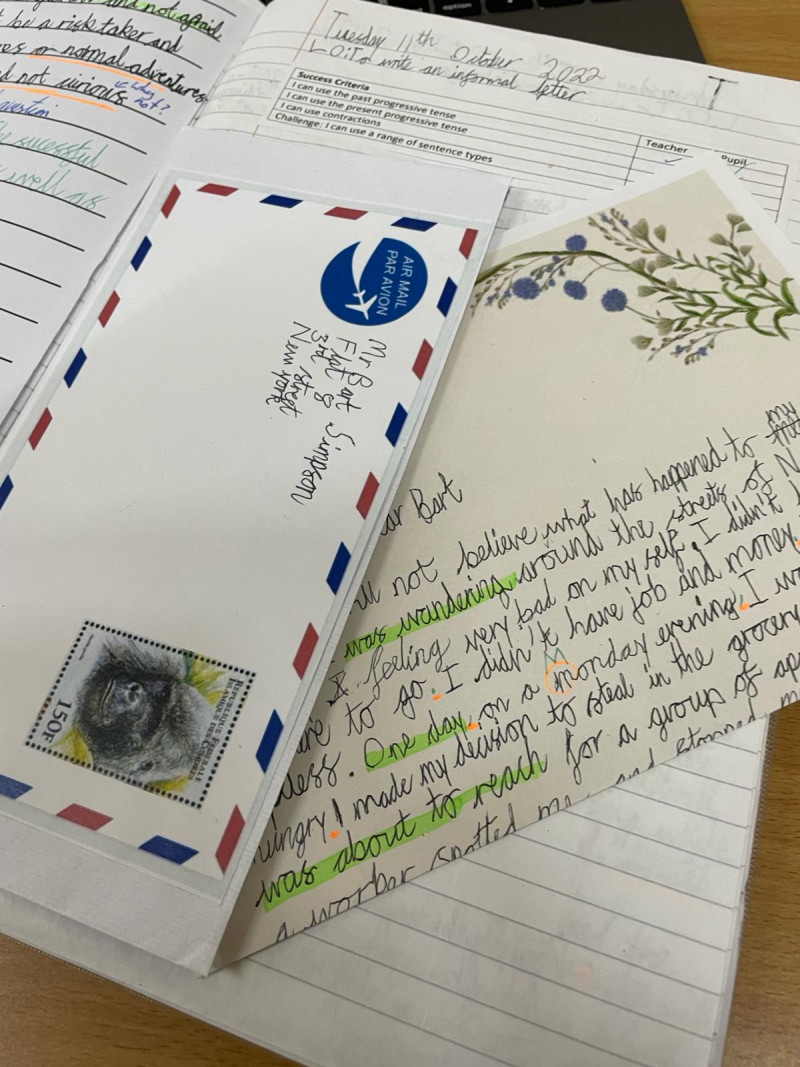 and not afraid
be a risk taker and
or normal adventures
not curious
why not?
question
sucessful
well as
option
Tuesday 11th October 2022
L.O: To write an informal letter
Success Criteria
I can use the past progressive tense
I can use the present progressive tense
I can use contractions
Challenge: I can use a range of sentence types
Teacher
Pupil
AIR MAIL
PAR AVION
Mr Bart Simpson
Flat 8
3rd street
New york
150F
REPUBLIQUE FEDERALE
ISLAMIQUE DES COMORES
ar Bart
not believe what has happened to my
was wandering around the streets of N
& feeling very bad on my self, I didn't
to go. I didn't have job and money.
less. One day, on a monday evening, I w
M
ungry! I made my decision to steal in the grocery
was about to reach for a group of ap
a worker spotted me and stopped m